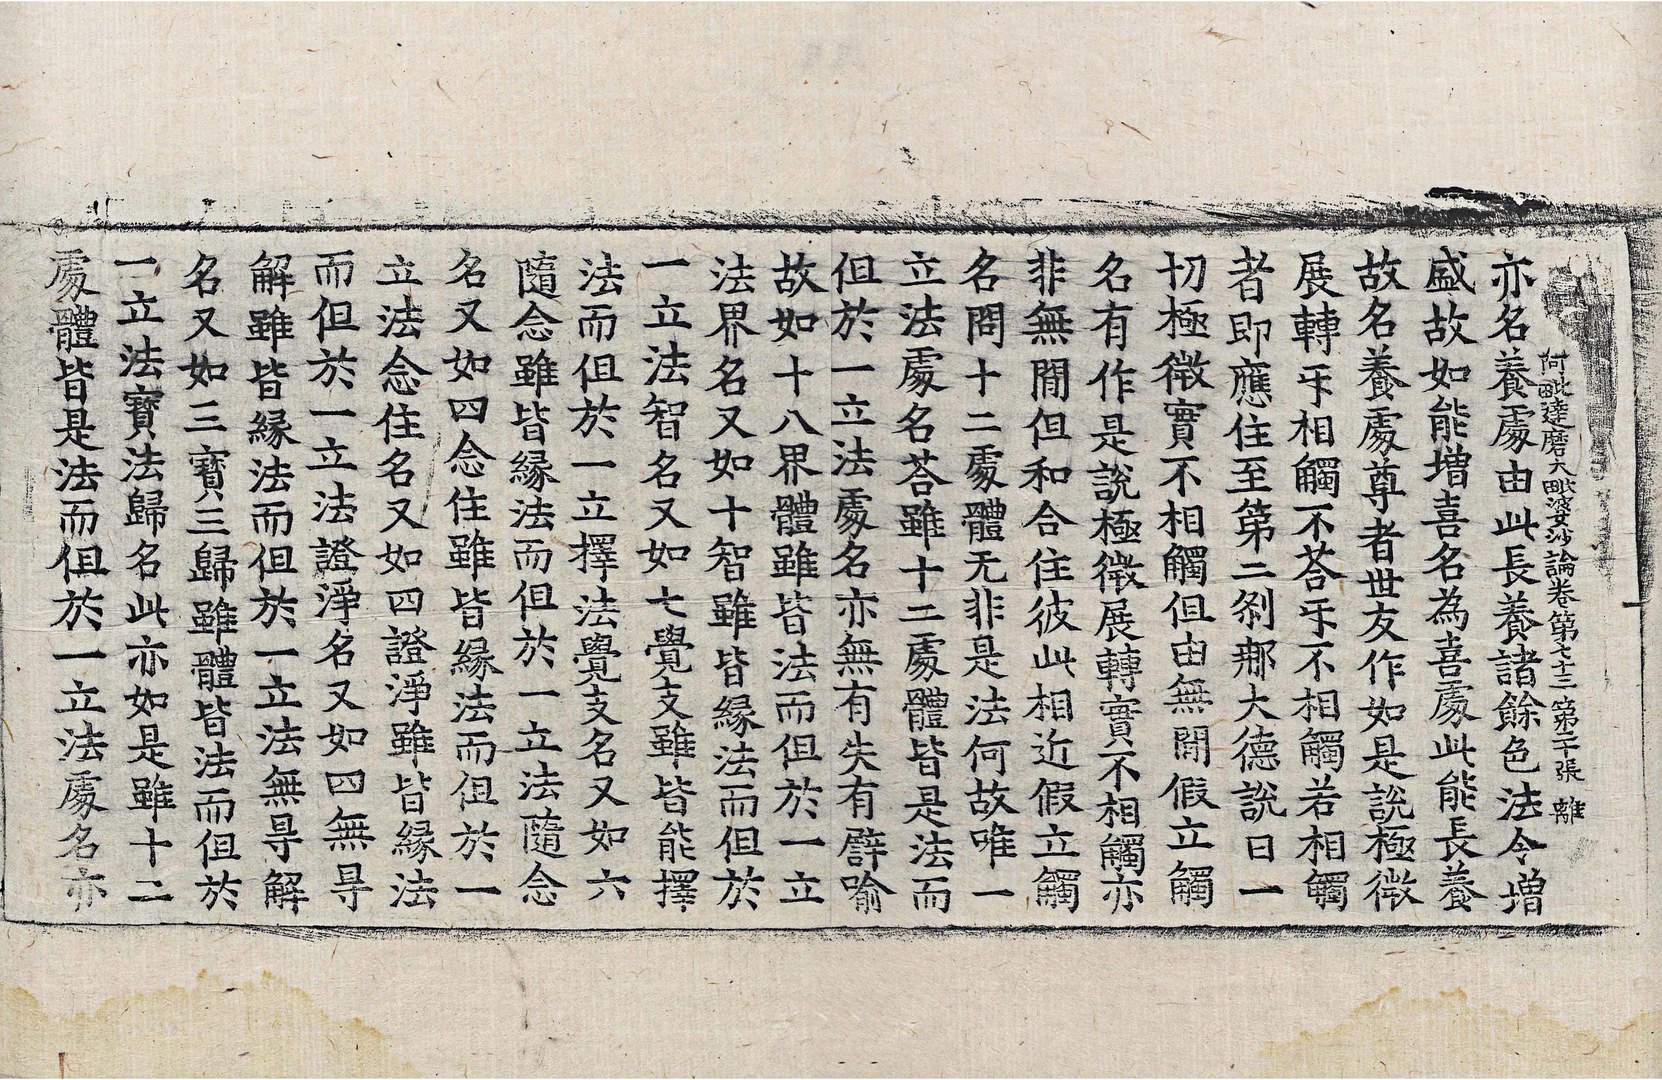 阿毗達磨大毗婆沙論卷第七十三 第二十張 離
亦名養處由此長養諸餘色法令增
盛故如能增喜名為喜處此能長養
故名養處尊者世友作如是說極微
展轉㸦相觸不荅㸦不相觸若相觸
者即應住至第二剎那大德說曰一
切極微實不相觸但由無間假立觸
名有作是說極微展轉實不相觸亦
非無間但和合住彼此相近假立觸
名問十二處體无非是法何故唯一
立法處名荅雖十二處體皆是法而
但於一立法處名亦無有失有譬喻
故如十八界體雖皆法而但於一立
法界名又如十智雖皆緣法而但於
一立法智名又如七覺支雖皆能擇
法而但於一立擇法覺支名又如六
隨念雖皆緣法而但於一立法隨念
名又如四念住雖皆緣法而但於一
立法念住名又如四證淨雖皆緣法
而但於一立法證淨名又如四無㝵
解雖皆緣法而但於一立法無㝵解
名又如三寶三歸雖體皆法而但於
一立法寶法歸名此亦如是雖十二
處體皆是法而但於一立法處名亦